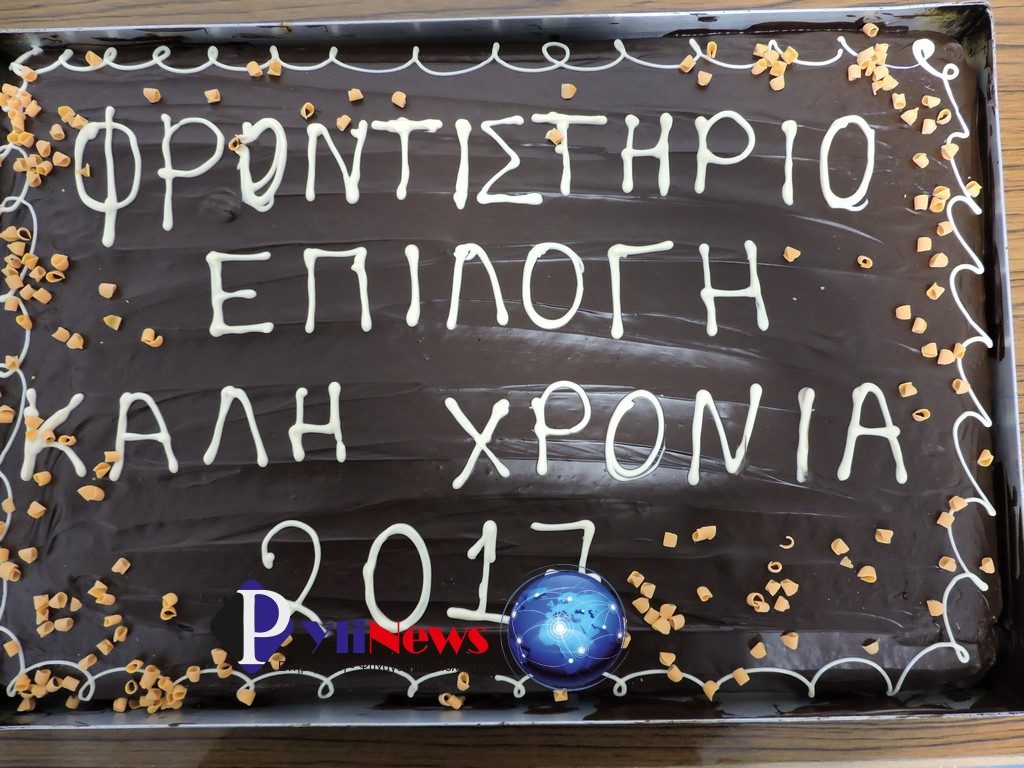 ΦΡΟΝΤΙΣΤΗΡΙΟ
ΕΠΙΛΟΓΗ
ΚΑΛΗ ΧΡΟΝΙΑ
2017
PyliNews